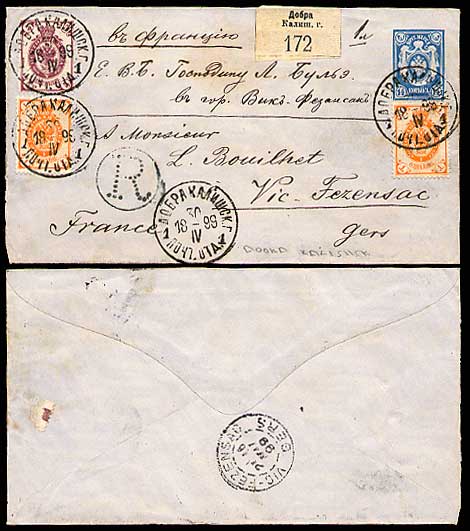 въ Францію
Добра
Калиш. г.
172
1 л
Е. В. Б. Господину Л. Булье
въ гор. Викъ-Фезансакъ
A Monsieur
L. Bouilhet
Vic-Fezensac
France
gers
R
ДОБРА КАЛИШСК. Г.
30
18 99
IV
1 ПОЧТ. ОТД. 1
DOBRA KALISHSK
VIC-FEZENSAC
GERS
99